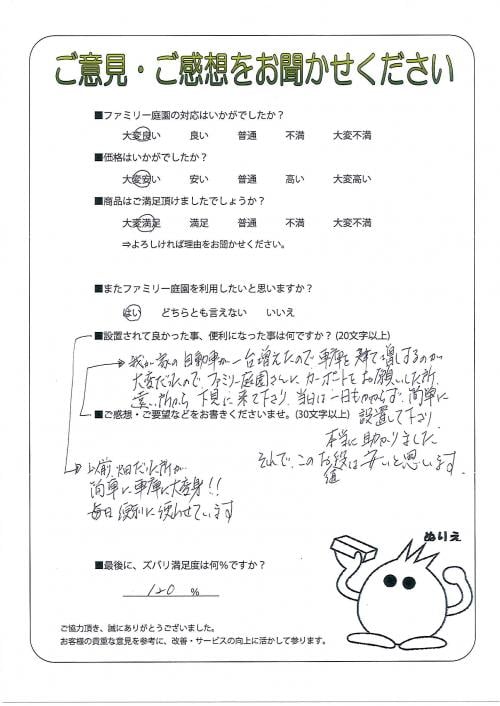 ご意見・ご感想をお聞かせください
■ファミリー庭園の対応はいかがでしたか？
大変良い 良い 普通 不満 大変不満
■価格はいかがでしたか？
大変安い 安い 普通 高い 大変高い
■商品はご満足頂けましたでしょうか？
大変満足 満足 普通 不満 大変不満
⇒よろしければ理由をお聞かせください。
■またファミリー庭園を利用したいと思いますか？
はい どちらとも言えない いいえ
■設置されて良かった事、便利になった事は何ですか？(20文字以上)
我が家の自動車が一台増えたので車庫を建て増しするのが
大変だったので、ファミリー庭園さんにカーポートをお願いした所
遠い所から下見に来て下さり、当日は一日もかからず、簡単に
■ご感想・ご要望などをお書きくださいませ。(30文字以上)
設置して下さり
本当に助かりました
それで、このお値段は安いと思います。
以前、畑だった所が
簡単に車庫に大変身！！
毎日便利に使わせています
ぬりえ
■最後に、ズバリ満足度は何％ですか？
120 ％
ご協力頂き、誠にありがとうございました。
お客様の貴重な意見を参考に、改善・サービスの向上に活かして参ります。